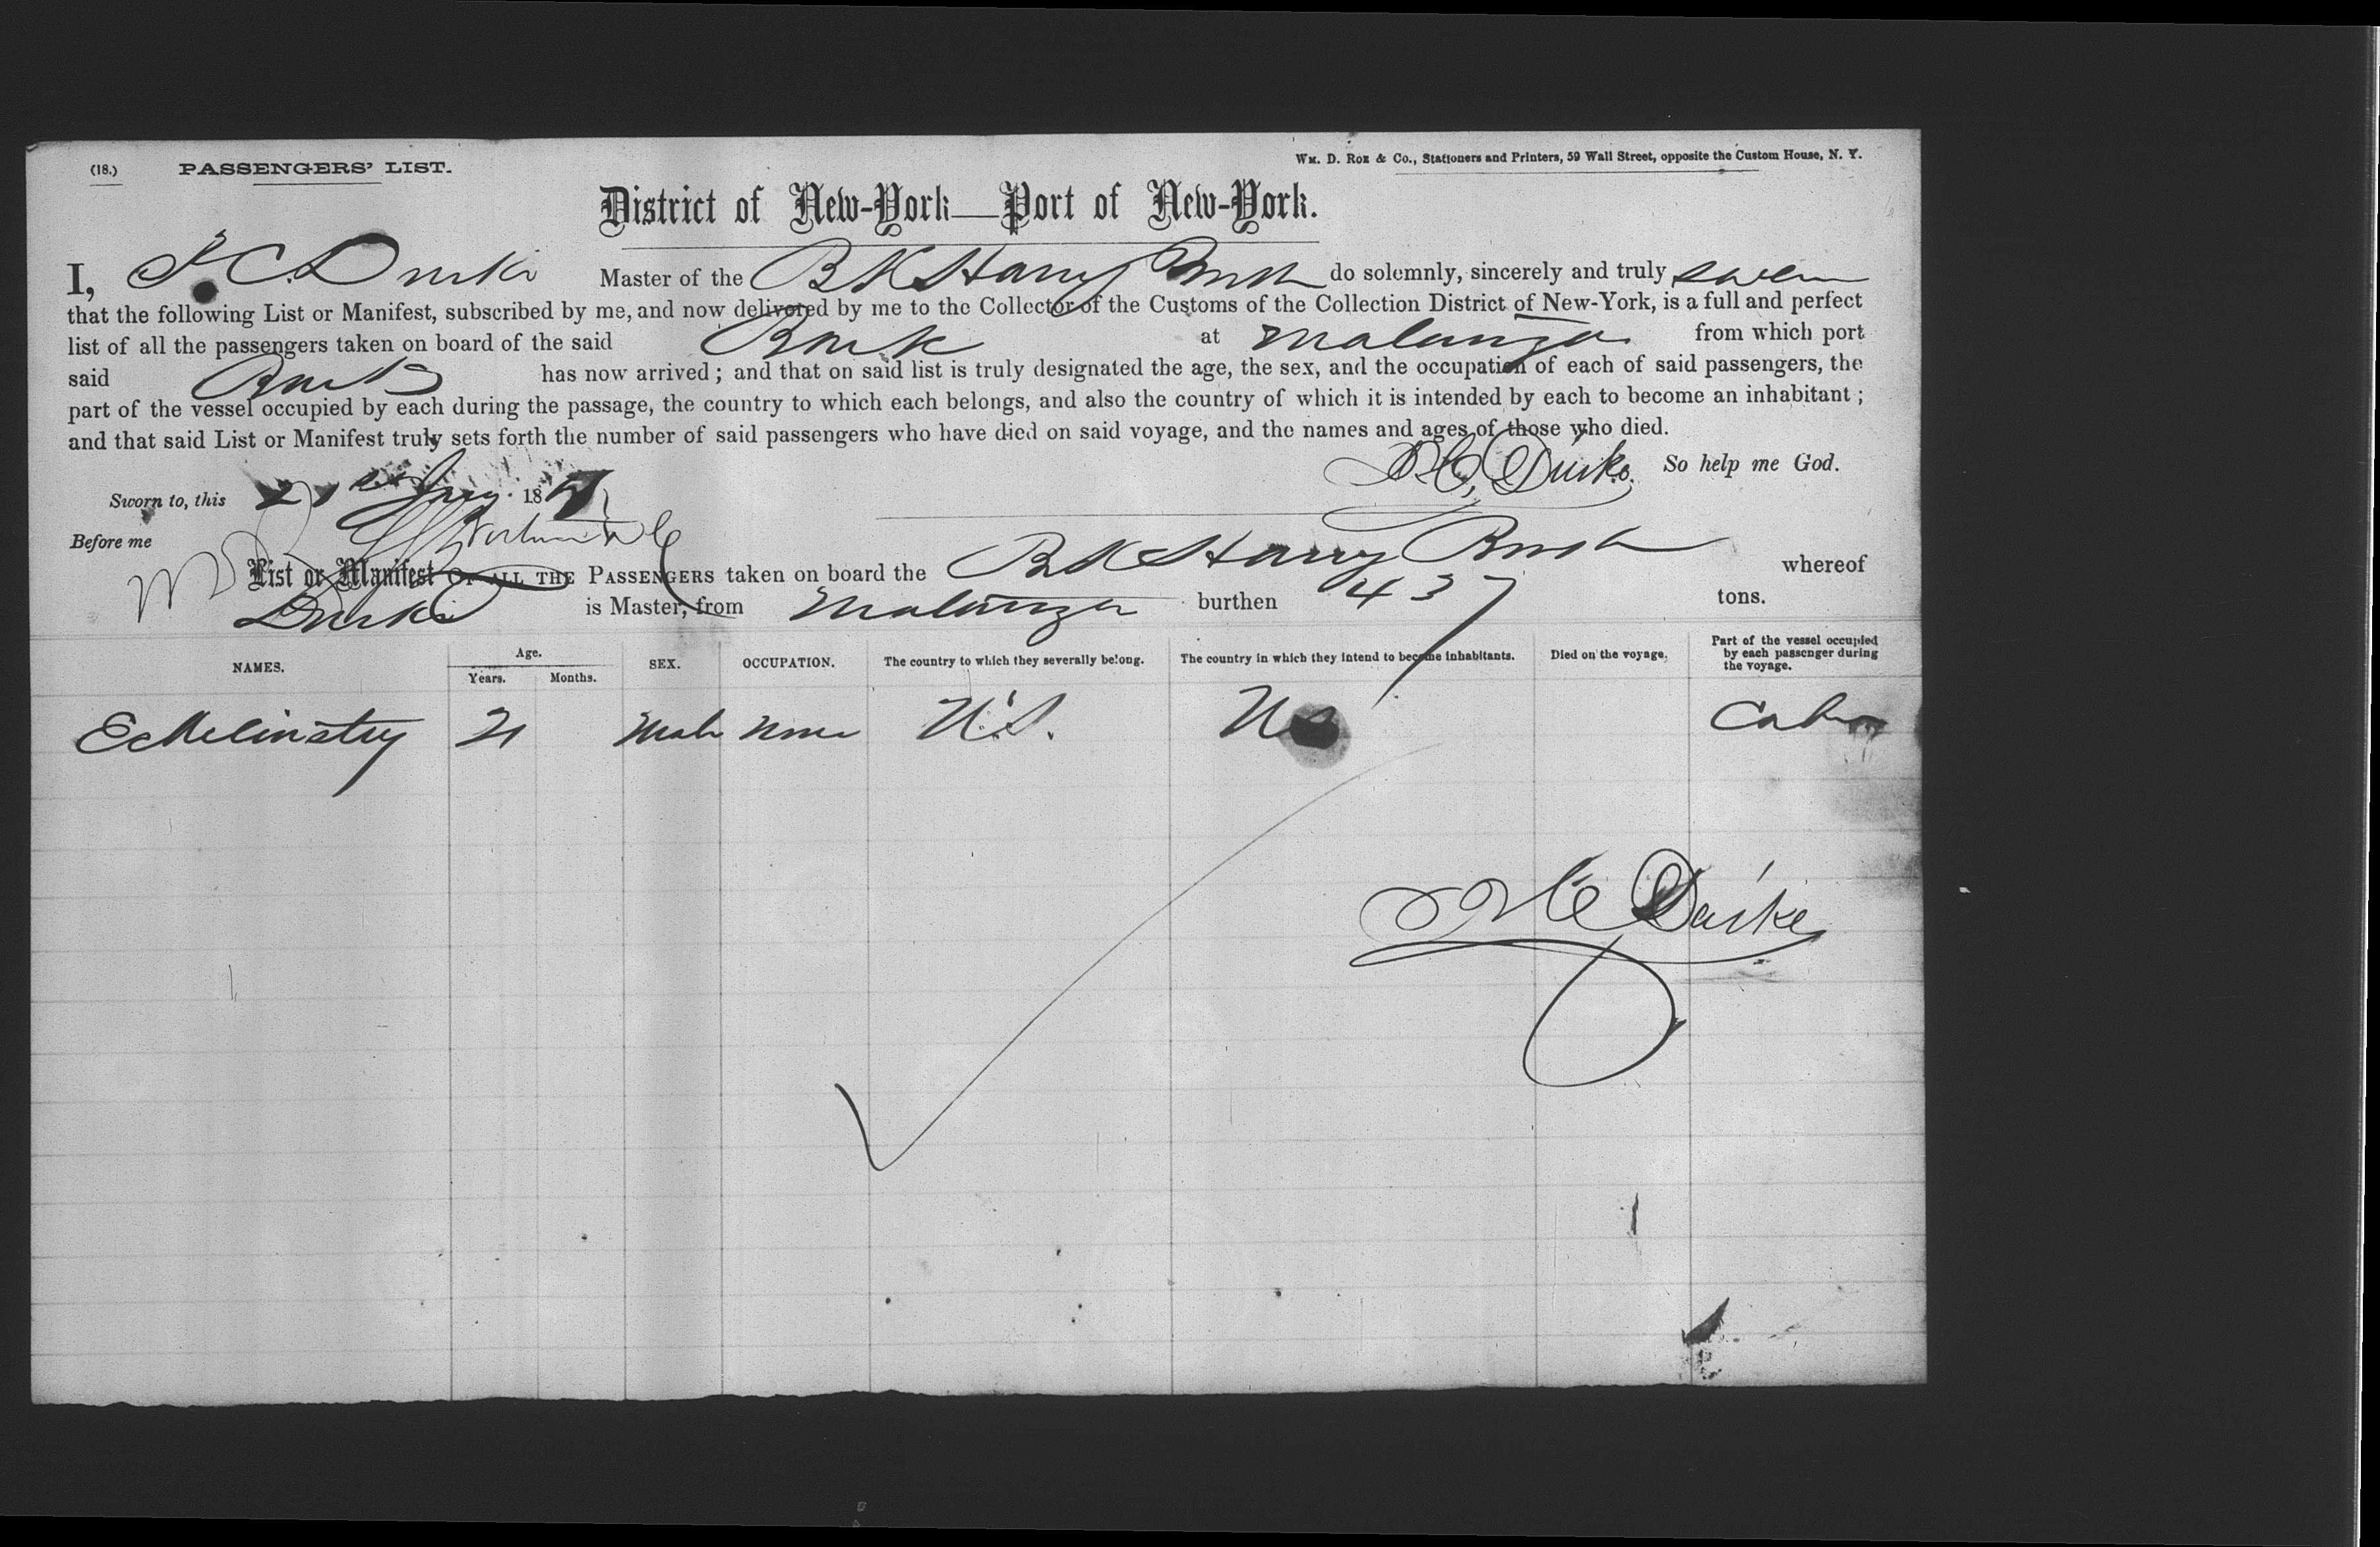 (18.) PASSENGERS' LIST.
Wm. D. Roe & Co., Stationers and Printers, 59 Wall Street, opposite the Custom House, N. Y.
District of New-York—Port of New-York.
I, Master of the BK Harry do solemnly, sincerely and truly swear
that the following List or Manifest, subscribed by me, and now delivered by me to the Collector of the Customs of the Collection District of New-York, is a full and perfect
list of all the passengers taken on board of the said Bark at Matanzas from which port
said Bark has now arrived; and that on said list is truly designated the age, the sex, and the occupation of each of said passengers, the
part of the vessel occupied by each during the passage, the country to which each belongs, and also the country of which it is intended by each to become an inhabitant;
and that said List or Manifest truly sets forth the number of said passengers who have died on said voyage, and the names and ages of those who died.
So help me God.
Sworn to, this 21st 18
Before me
List or Manifest OF ALL THE PASSENGERS taken on board the BK Harry whereof
is Master, from Matanzas burthen 437 tons.
NAMES. Age. Years. Months. SEX. OCCUPATION. The country to which they severally belong. The country in which they intend to become inhabitants. Died on the voyage. Part of the vessel occupied by each passenger during the voyage.
21 Male None U.S. US Cabin